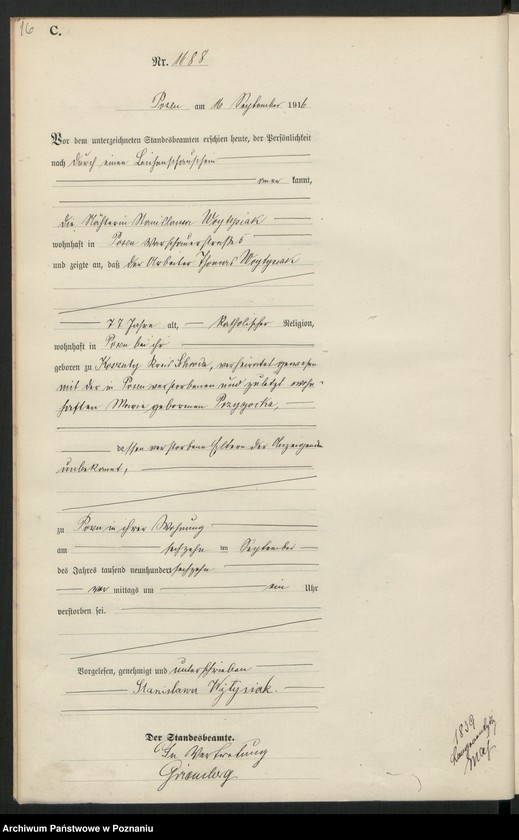 16
C.
Nr. 1188
Posen am 16 September 1916
Vor dem unterzeichneten Standesbeamten erschien heute, der Persönlichkeit
nach durch einen Leichenschauschein
aner kannt,
die Näherin Stanislawa Woytysiak
wohnhaft in Posen Warschauerstraße 5
und zeigte an, daß der Arbeiter Thomas Woytysiak
77 Jahre alt, katholischer Religion,
wohnhaft in Posen bei ihr
geboren zu Kreis Schroda, verheiratet gewesen
mit der in Posen verstorbenen und zuletzt wohn-
haften Marie geborenen
dessen verstorbene Eltern der Anzeigende
unbekannt,
zu Posen in ihrer Wohnung
am sechzehn ten September
des Jahres tausend neunhundert sechzehn
vor mittags um ein Uhr
verstorben sei.
Vorgelesen, genehmigt und unterschrieben
Stanisława Wojtysiak.
Der Standesbeamte.
In Vertretung
1839
Archiwum Państwowe w Poznaniu